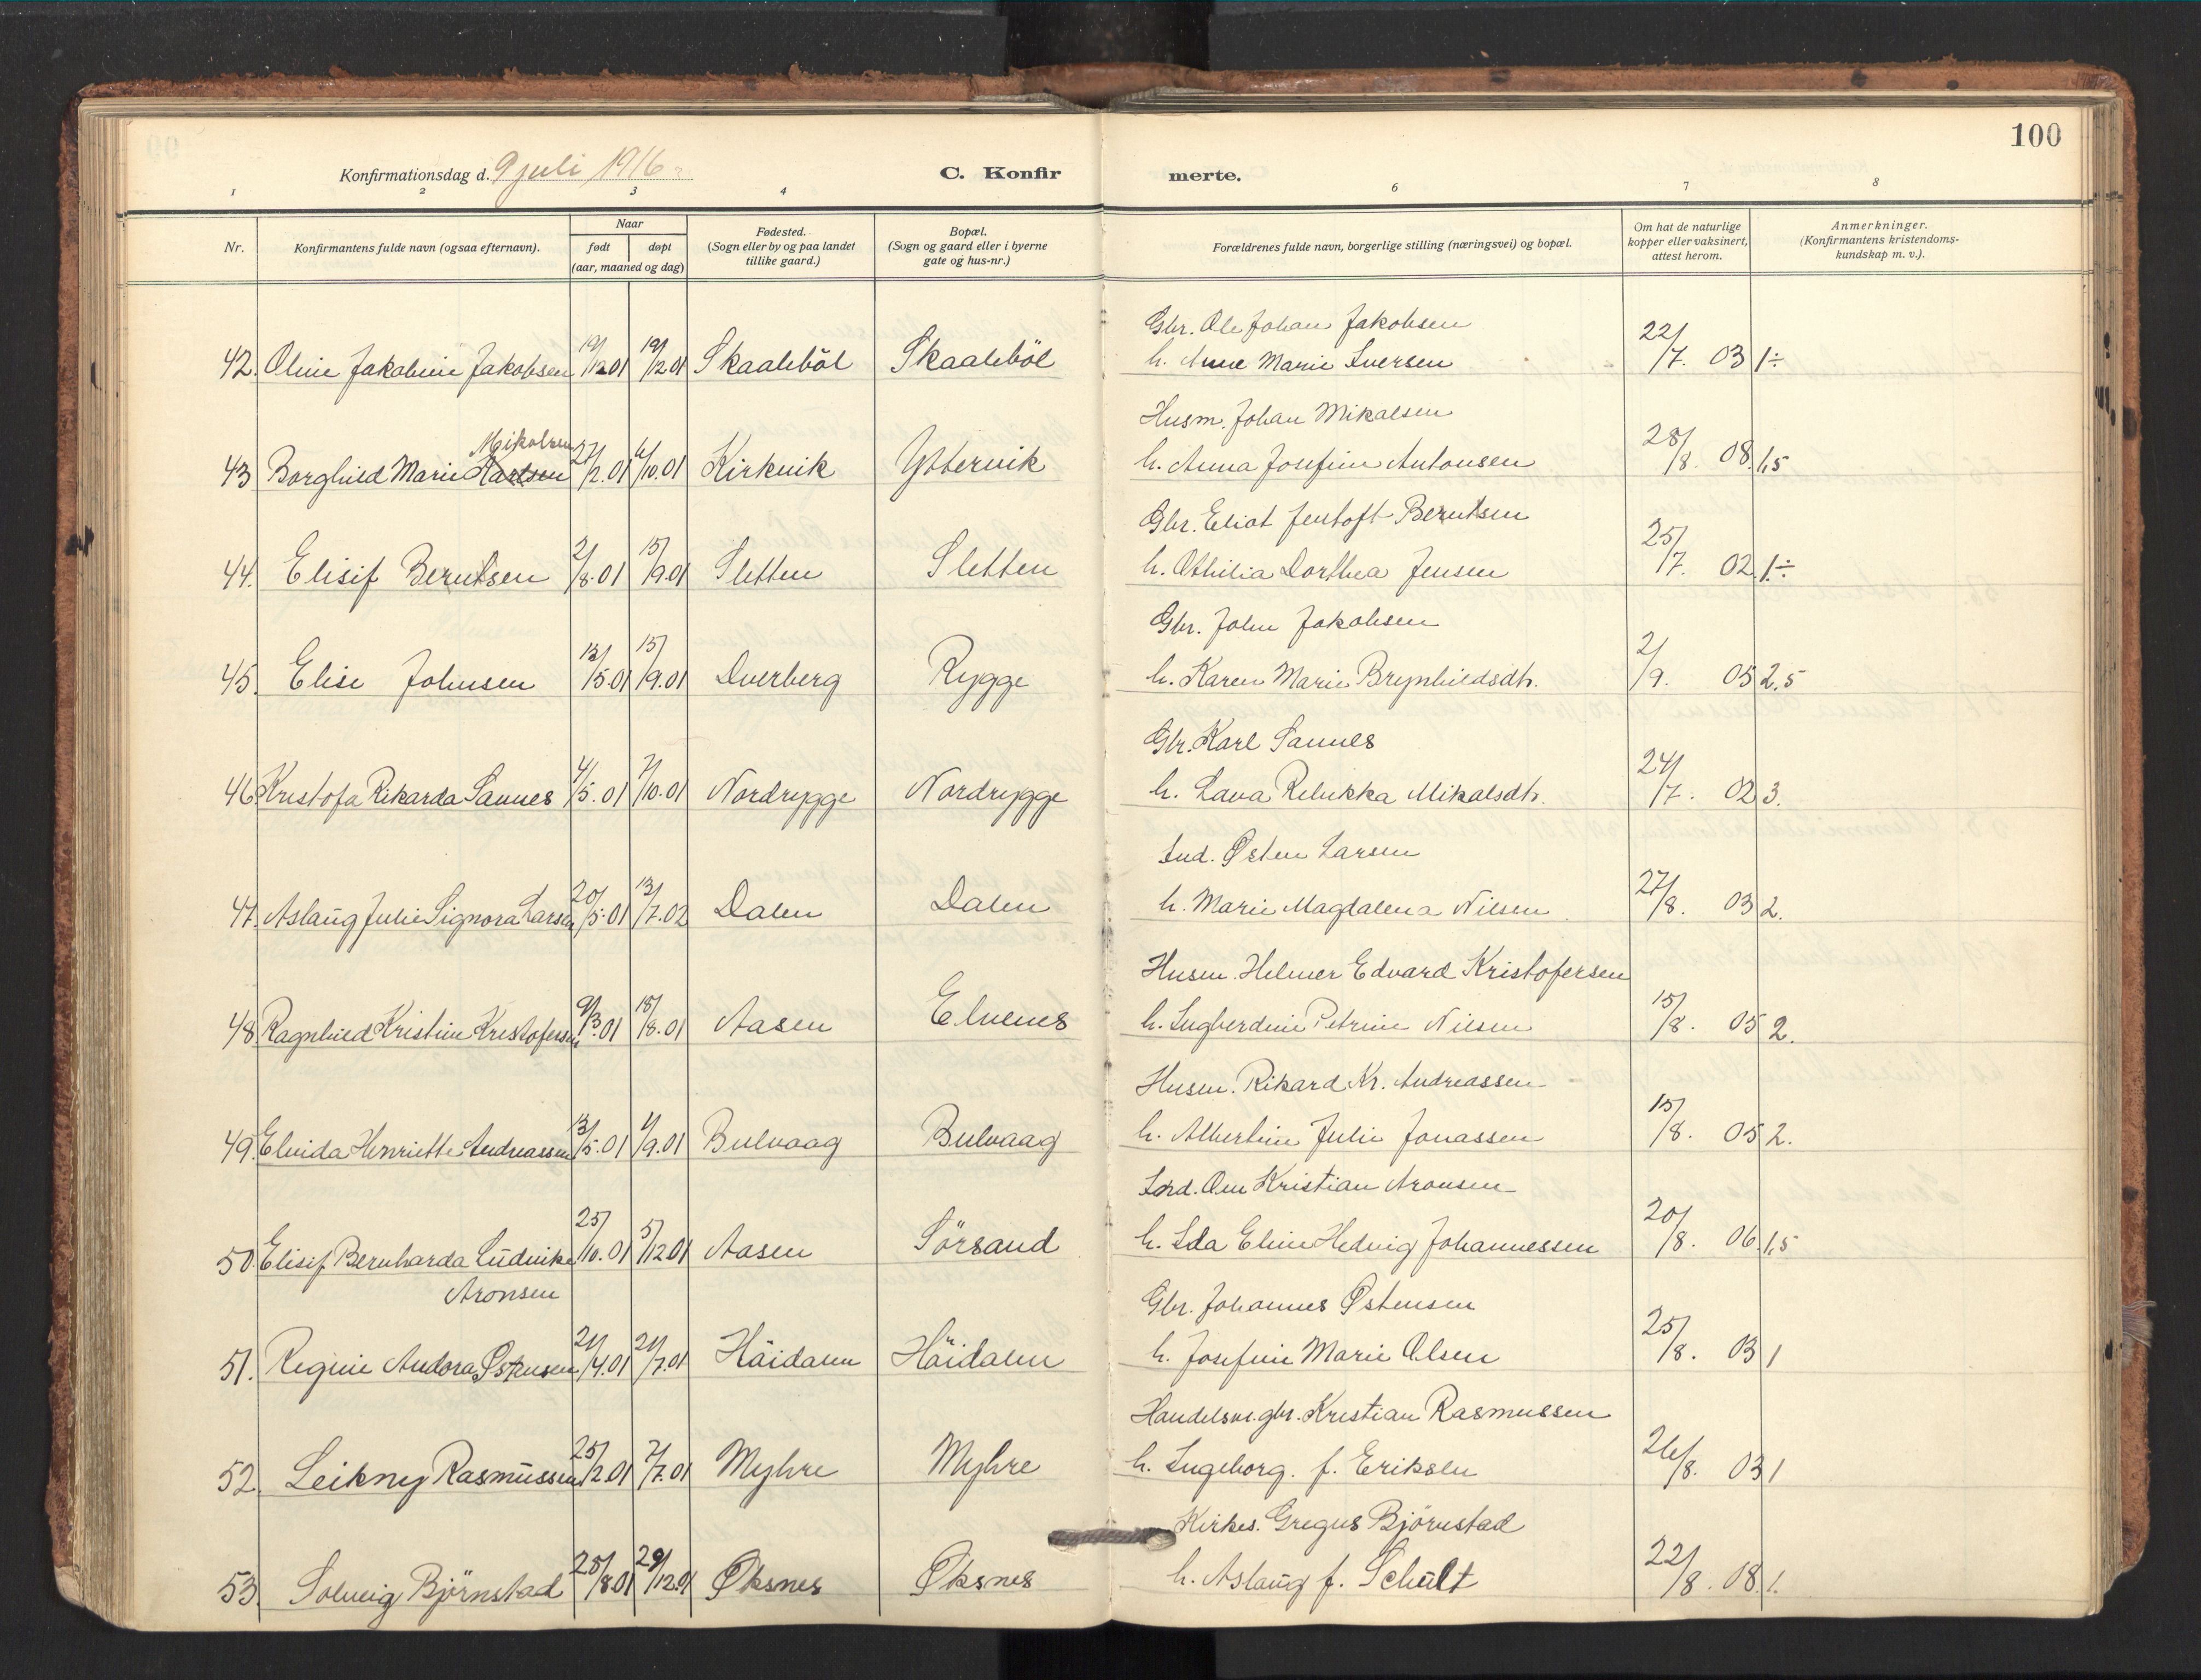 100
Konfirmationsdag d. 9 juli 1916
C. Konfir merte.
1 2 3 4 6 7 8
Nr.
Konfirmantens fulde navn (ogsaa efternavn).
Naar
født døpt
(aar, maaned og dag)
Fødested.
(Sogn eller by og paa landet
tillike gaard.)
Bopæl.
(Sogn og gaard eller i byerne
gate og hus-nr.)
Forældrenes fulde navn, borgerlige stilling (næringsvei) og bopæl.
Om hat de naturlige
kopper eller vaksinert,
attest herom.
Anmerkninger.
(Konfirmantens kristendoms-
kundskap m. v.).
Gbr. Ole Johan Jakobsen
42. Oline Jakobine Jakobsen 19/12 01 19/12 01 Skaaleböl Skaaleböl h. Anne Marie Iversen 22/7. 03 1÷
Husm. Johan Mikalsen
Mikalsen
43 Borghild Marie 27/2. 01 6/10. 01 Kirkvik Yttervik h. Anna Josefine Antonsen 28/8. 08. 1,5
Gbr. Eliot Jentoft Berntsen
44. Elisif Berntsen 2/8. 01 15/9. 01 Sletten Sletten h. Othilia Dorthea Jensen 25/7. 02. 1÷
Gbr. John Jakobsen
45. Elise Johnsen 13/5. 01 15/9. 01 Dverberg Rygge h. Karen Marie Brynhildsdtr. 2/9. 05 2,5
Gbr. Karl Sannes
46. Kristofa Rikarda Sannes 4/5. 01 7/10. 01 Nordrygge Nordrygge h. Lava Rebekka Mikalsdtr. 24/7. 02 3.
Ind. Østen Larsen
47. Aslaug Julie Signora Larsen 20/5. 01 13/7. 02 Dalen Dalen h. Marie Magdalena Nilsen 27/8. 03 2.
Husm. Helmer Edvard Kristofersen
48 Ragnhild Kristine Kristofersen 9/3. 01 18/8. 01 Aasen Elvenes h. Ingberdine Petrine Nilsen 15/8. 05 2.
Husm. Rikard Kr. Andreassen
49. Elvida Henriette Andreassen 13/5. 01 1/9. 01 Bulvaag Bulvaag h. Albertine Julie Jonassen 15/8. 05 2.
Ind. Om Kristian Aronsen
50. Elisif Bernharda Ludvike 25/10. 01 5/12 01 Aasen Sörsand h. Ida Eline Hedvig Johannessen 20/8. 06. 1,5
Aronsen
Gbr. Johannes Østensen
51. Regine Andora Østensen 21/4. 01 21/7. 01 Häidalen Häidalen h. Josefine Marie Olsen 25/8. 03 1
Handelsm. gbr. Kristian Rasmussen
52. Leikny Rasmussen 25/2. 01 7/7. 01 Myhre Myhre h. Ingeborg. f. Eriksen 26/8. 03 1
Kirkes. Gregus Björnstad
53. Solveig Björnstad 25/8 01 29/12 01 Øksnes Øksnes h. Aslaug f. Schult 22/8. 08. 1.